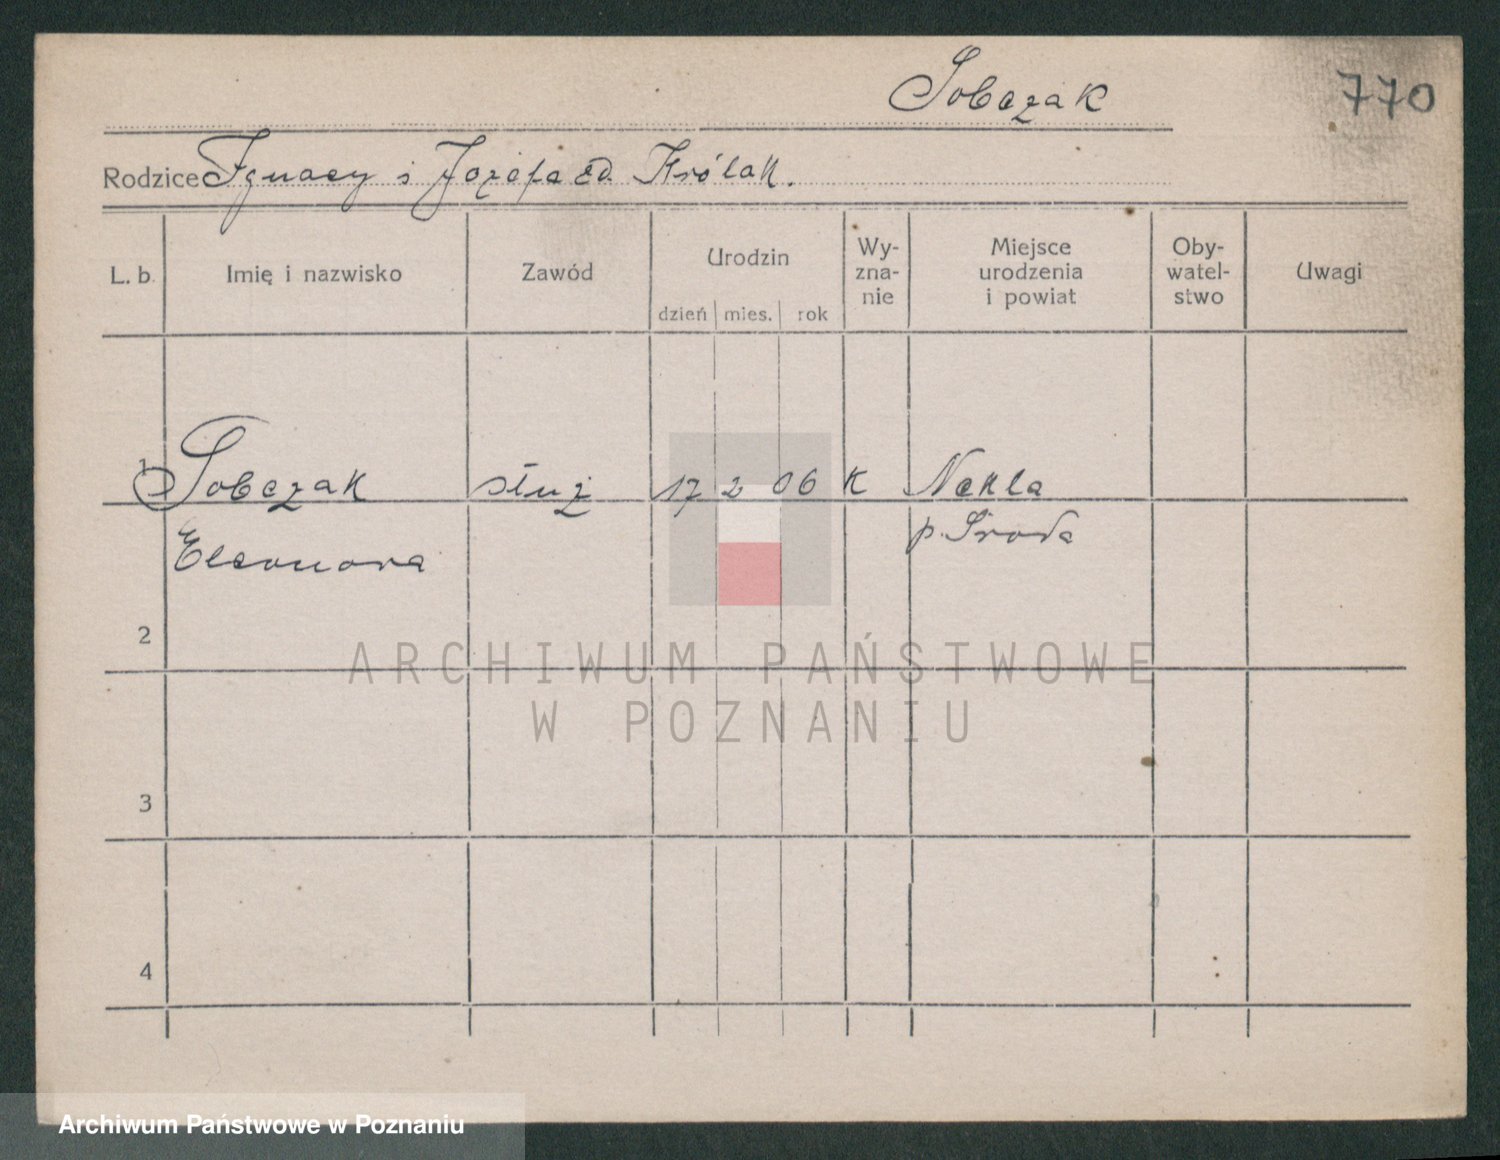 Sobczak
770
Rodzice Ignacy i Józefa zd. Królak.
L. b. Imię i nazwisko Zawód Urodzin Wy-zna-nie Miejsce urodzenia i powiat Oby-watel-stwo Uwagi
dzień mies. rok
1 Sobczak służ 17 2 06 K Nekla
Eleonora p. Środa
2
ARCHIWUM PAŃSTWOWE
W POZNANIU
3
4
Archiwum Państwowe w Poznaniu